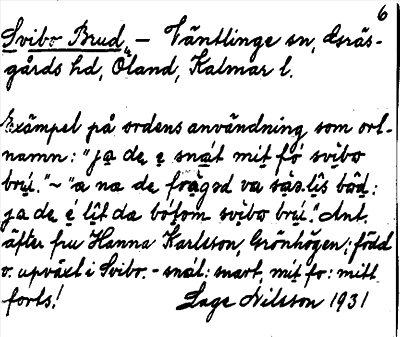 6
Svibo Brud, – Väntlinge sn, Gräs-
gårds hd, Öland, Kalmar l.
Exämpel på ordens användning som ort-
namn: "ja de e snát mit fó svibo
brú." ~ "a na de va båd:
ja de é lit da bótom svibo brú." Ant.
äfter fru Hanna Karlsson, Grönhögen; född
o. upväxt i Svibo. – snát: snart, mit fo: mitt
forts! Lage Nilsson 1931